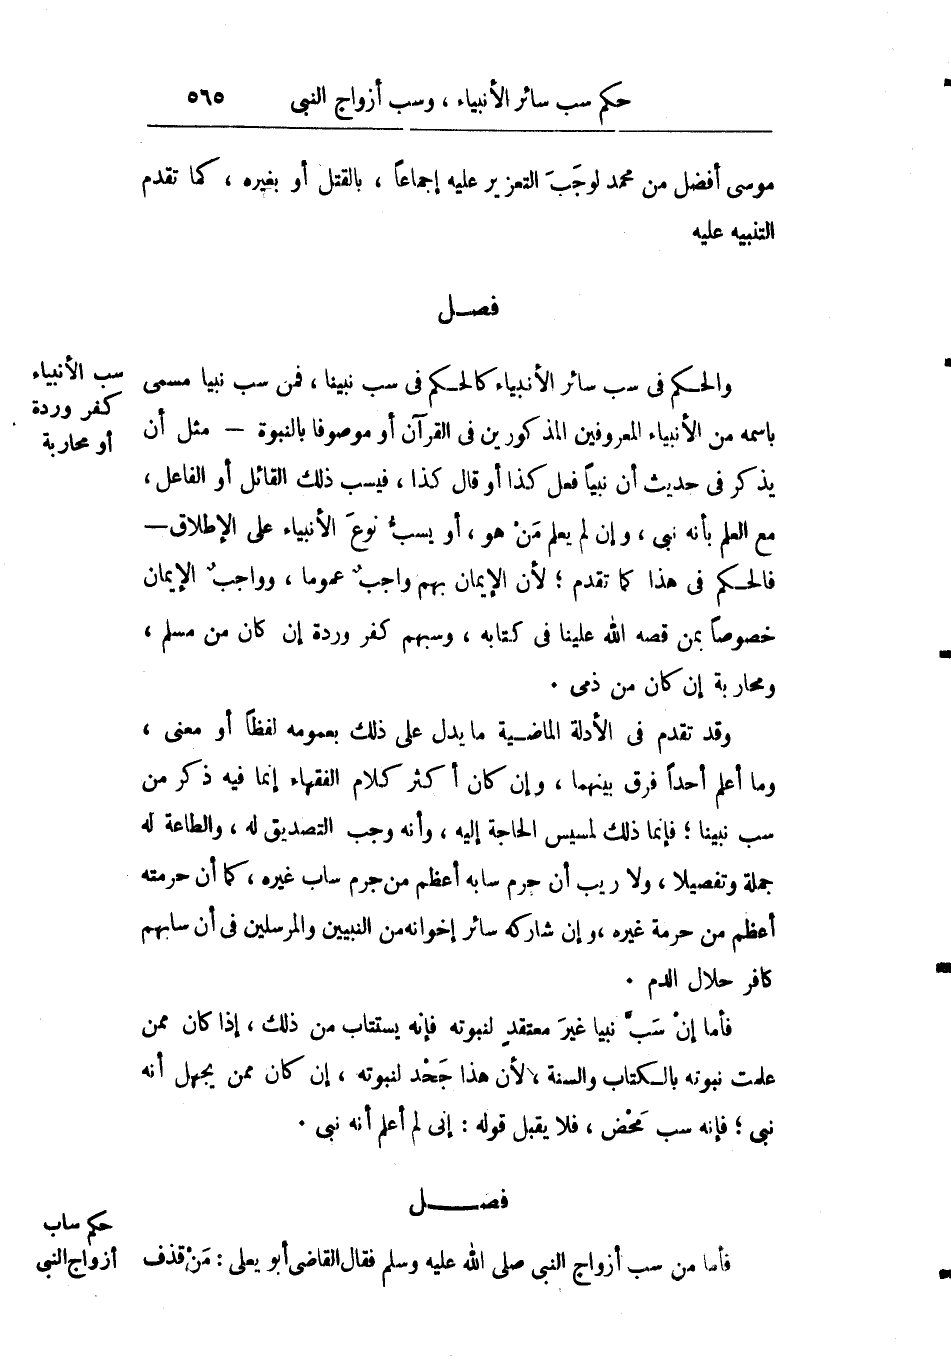 حكم سب سائر الأنبياء ، وسب أزواج النبى ٥٦٥
موسى أفضل من محمد لوجَبَ التعزير عليه إجماعاً ، بالقتل أو بغيره ، كما تقدم
التنبيه عليه
فصل
سب الأنبياء
كفر وردة
أو محاربة
والحكم فى سب سائر الأنبياء كالحكم فى سب نبينا ، فمن سب نبيا مسمى
باسمه من الأنبياء المعروفين المذكورين فى القرآن أو موصوفا بالنبوة — مثل أن
يذكر فى حديث أن نبياً فعل كذا أو قال كذا ، فيسب ذلك القائل أو الفاعل ،
مع العلم بأنه نبى ، وإن لم يعلم مَنْ هو ، أو يسبُّ نوعَ الأنبياء على الإطلاق —
فالحكم فى هذا كما تقدم ؛ لأن الإيمان بهم واجبٌ عموما ، وواجبٌ الإيمان
خصوصاً بمن قصه الله علينا فى كتابه ، وسبهم كفر وردة إن كان من مسلم ،
ومحاربة إن كان من ذمى .
وقد تقدم فى الأدلة الماضية ما يدل على ذلك بعمومه لفظاً أو معنى ،
وما أعلم أحداً فرق بينهما ، وإن كان أكثر كلام الفقهاء إنما فيه ذكر من
سب نبينا ؛ فإنما ذلك لمسيس الحاجة إليه ، وأنه وجب التصديق له ، والطاعة له
جملة وتفصيلا ، ولا ريب أن جرم سابه أعظم من جرم ساب غيره ، كما أن حرمته
أعظم من حرمة غيره ، وإن شاركه سائر إخوانه من النبيين والمرسلين فى أن سابهم
كافر حلال الدم .
فأما إنْ سَبَّ نبيا غيرَ معتقدٍ لنبوته فإنه يستتاب من ذلك ، إذا كان ممن
علمت نبوته بالكتاب والسنة ، لأن هذا جَحْد لنبوته ، إن كان ممن يجهل أنه
نبى ؛ فإنه سب مَحْض ، فلا يقبل قوله : إنى لم أعلم أنه نبى .
فصل
حكم ساب
أزواج النبى
فأما من سب أزواج النبى صلى الله عليه وسلم فقال القاضى أبو يعلى : مَنْ قذف